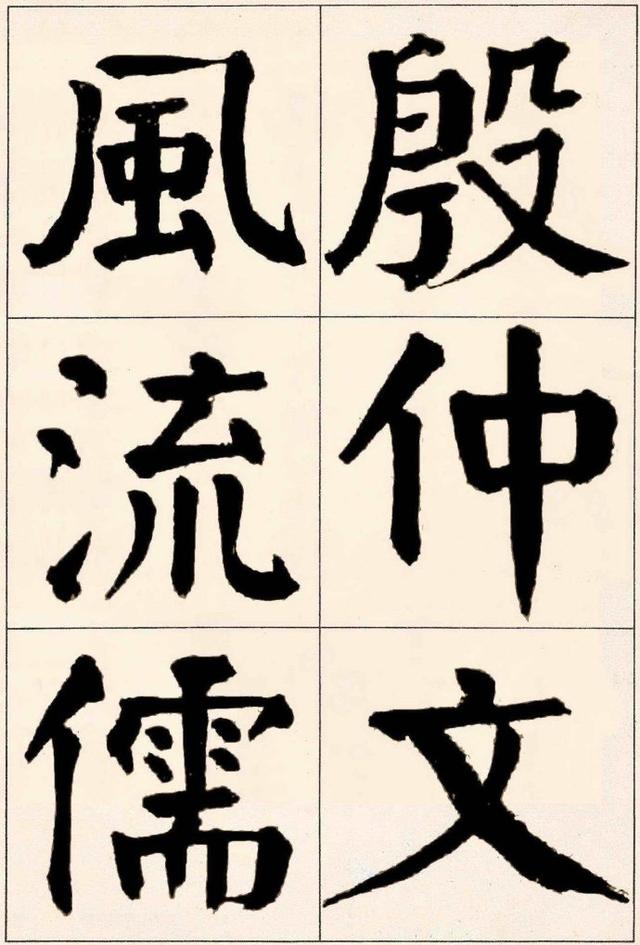 殷仲文
風流儒